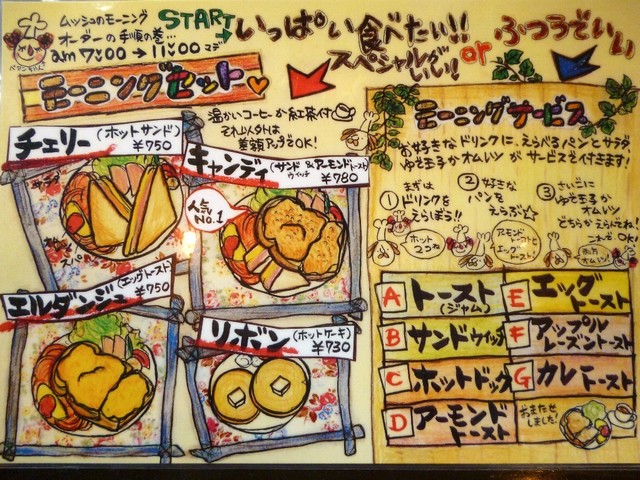 ムッシュのモーニング
オーダーの手順の巻…
am 7:00→11:00マデ
START
いっぱい食べたい!!
スペシャルが
いい!!
or
ふつうでいい
モーニングセット
温かいコーヒーか紅茶付
それ以外は
差額アップでOK!
チェリー(ホットサンド)
¥750
キャンディ(サンドウィッチ&アーモンドトースト)
¥780
人気
No.1
エルダンジュ(エッグトースト)
¥750
リボン(ホットケーキ)
¥730
モーニングサービス
お好きなドリンクに、えらべるパンとサラダ
ゆで玉子かオムレツがサービスで付きます!
①まずは
ドリンクを
えらぼう!!
②好きな
パンを
えらぶ☆
③さいごに
ゆで玉子か
オムレツ
どちらかえらんでね!
これでOK!
A トースト
(ジャム)
B サンドウィッチ
C ホットドッグ
D アーモンド
トースト
E エッグ
トースト
F アップル
レーズントースト
G カレートースト
おまたせ
しました!